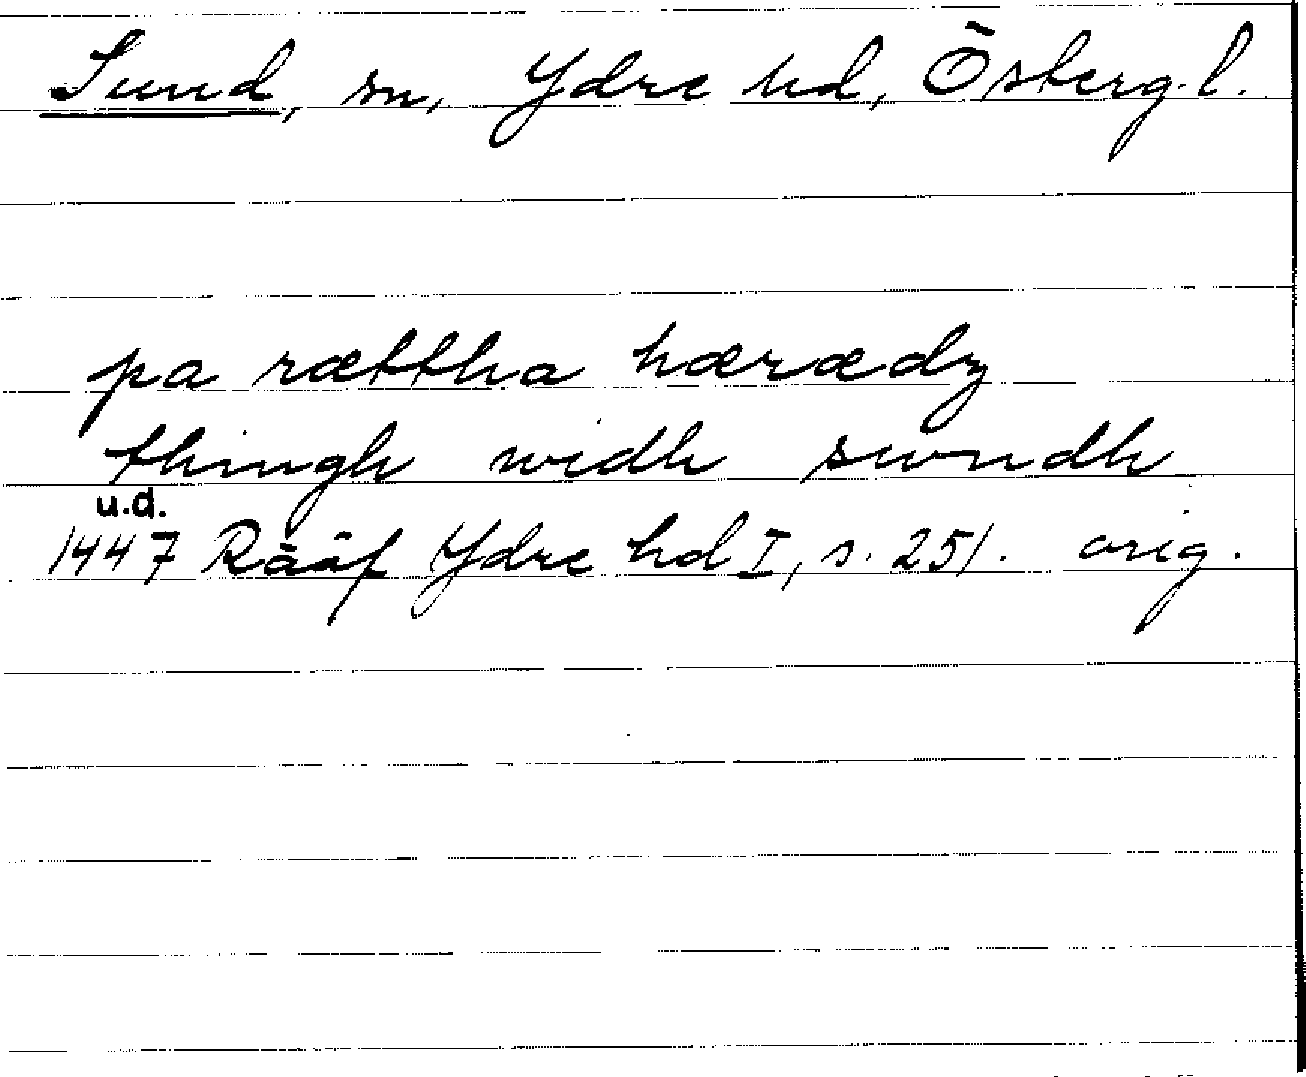 Sund, sn, Ydre hd, Österg.l.
pa rættha hærædz
thingh widh swndh
u.d.
1447 Rääf Ydre hd I, s. 251. orig.